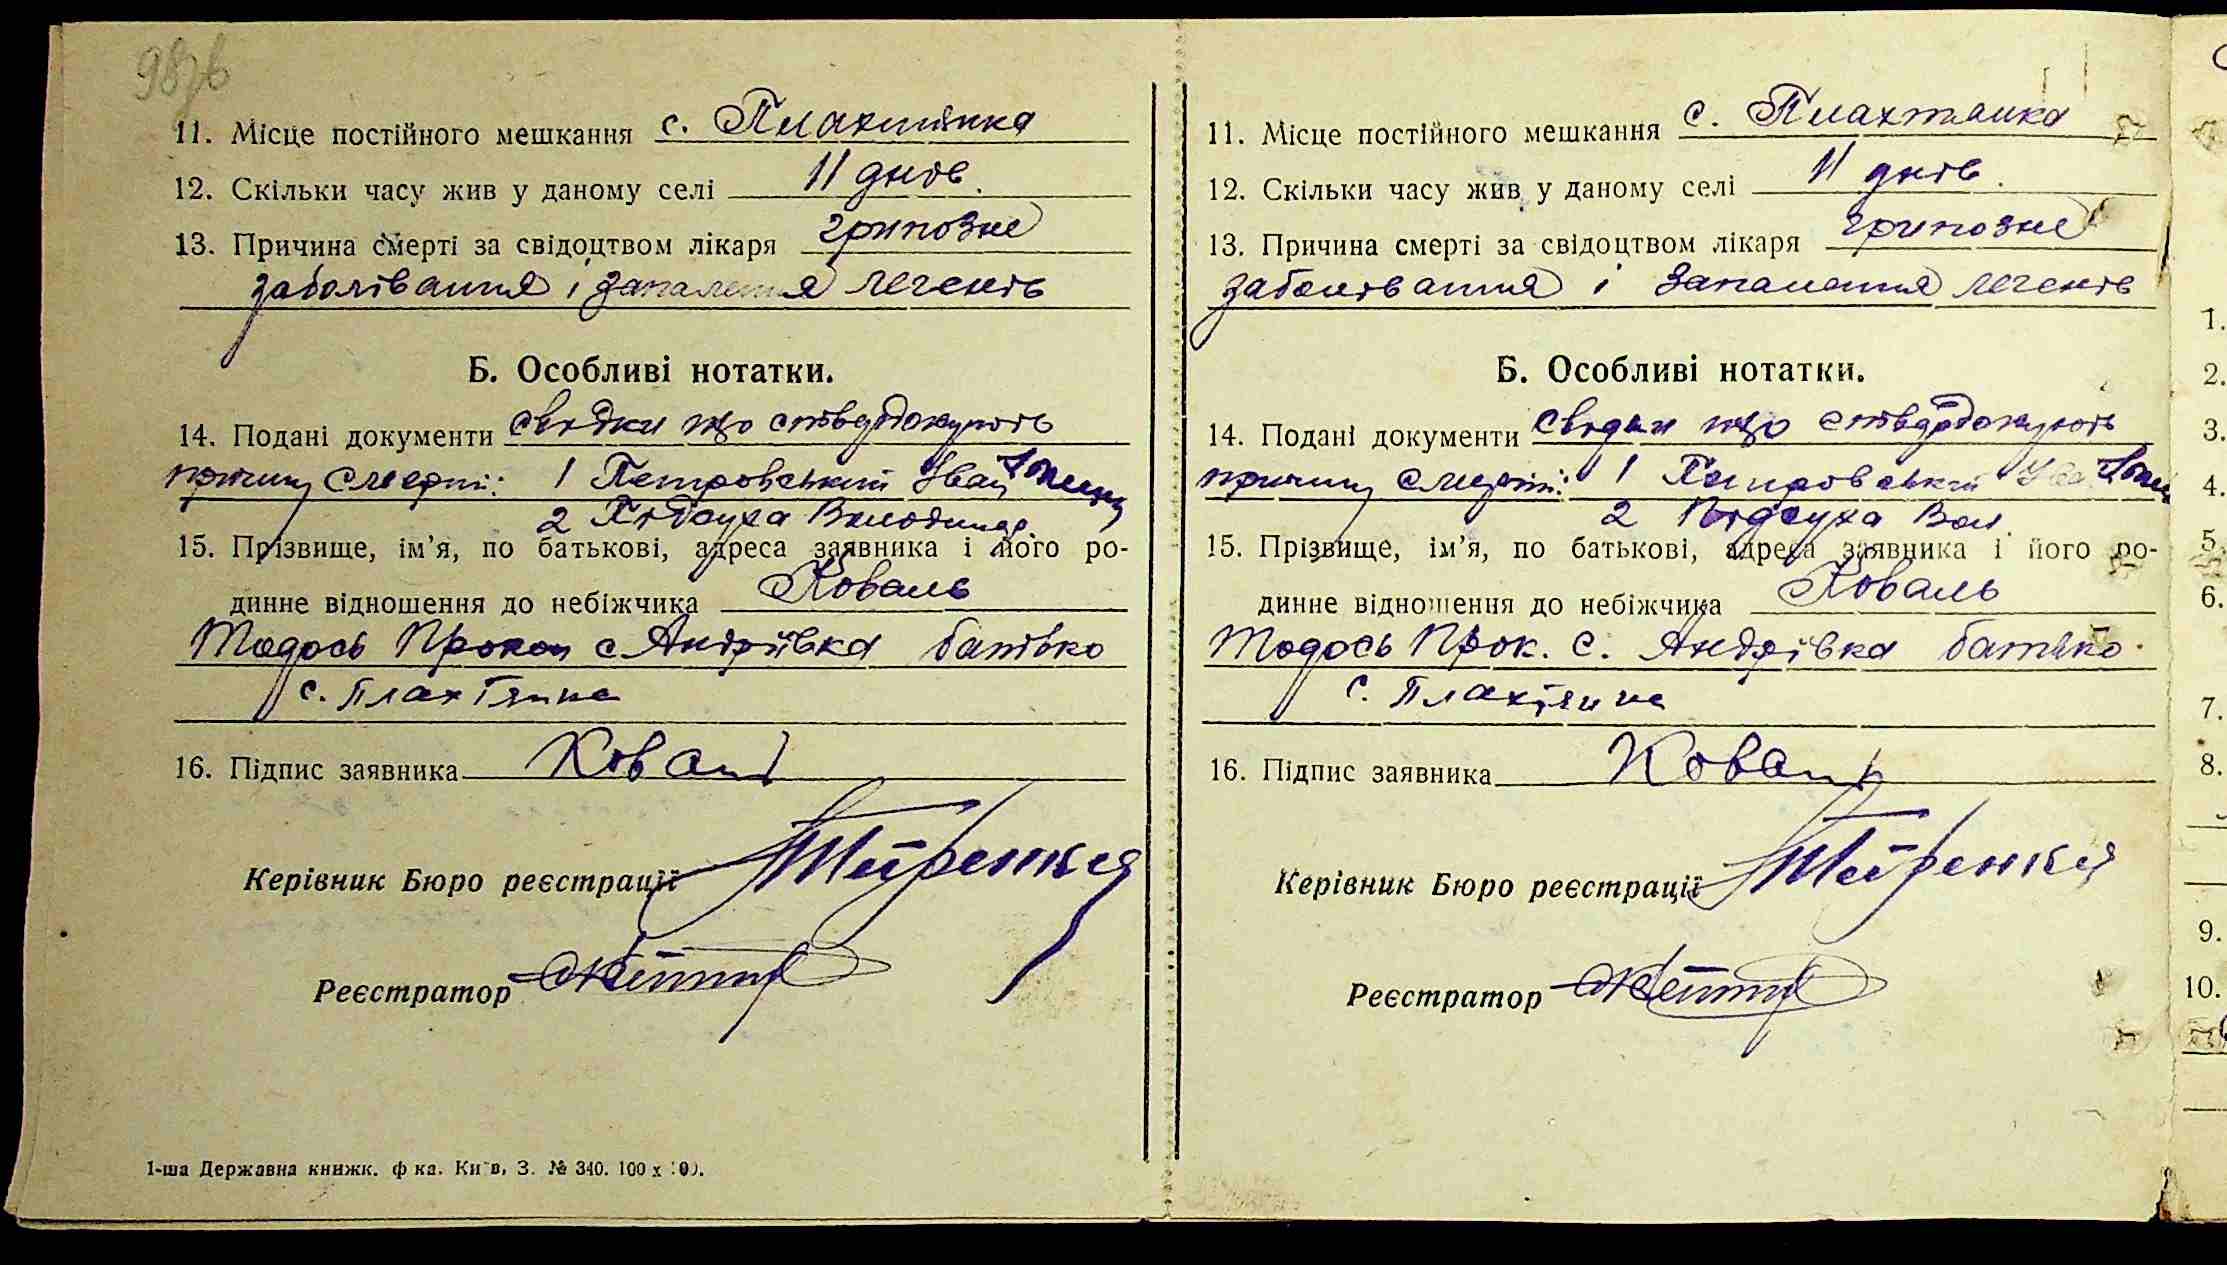 11. Місце постійного мешкання с. Плахтянка
12. Скільки часу жив у даному селі 11 днів.
13. Причина смерті за свідоцтвом лікаря грипозне
заболівання і запалення легенів
Б. Особливі нотатки.
14. Подані документи свідки що стверджують
причину смерті: 1 Петровський Іван
2 Підсуха Володимир.
15. Прізвище, ім'я, по батькові, адреса заявника і його ро-
динне відношення до небіжчика Коваль
Тодось Прокоп с Андріївка батько
с. Плахтянка
16. Підпис заявника Коваль
Керівник Бюро реєстрації
Реєстратор
1-ша Державна книжк. ф ка. Київ, З. № 340. 100 х
11. Місце постійного мешкання с. Плахтянка
12. Скільки часу жив у даному селі 11 днів.
13. Причина смерті за свідоцтвом лікаря грипозне
заболівання і запалення легенів
Б. Особливі нотатки.
14. Подані документи свідки що стверджують
причину смерті: 1 Петровський
2 Підсуха Вол.
15. Прізвище, ім'я, по батькові, адреса заявника і його ро-
динне відношення до небіжчика Коваль
Тодось Прок. с. Андріївка батько.
с. Плахтянка
16. Підпис заявника Коваль
Керівник Бюро реєстрації
Реєстратор
1.
2.
3.
4.
5.
6.
7.
8.
9.
10.